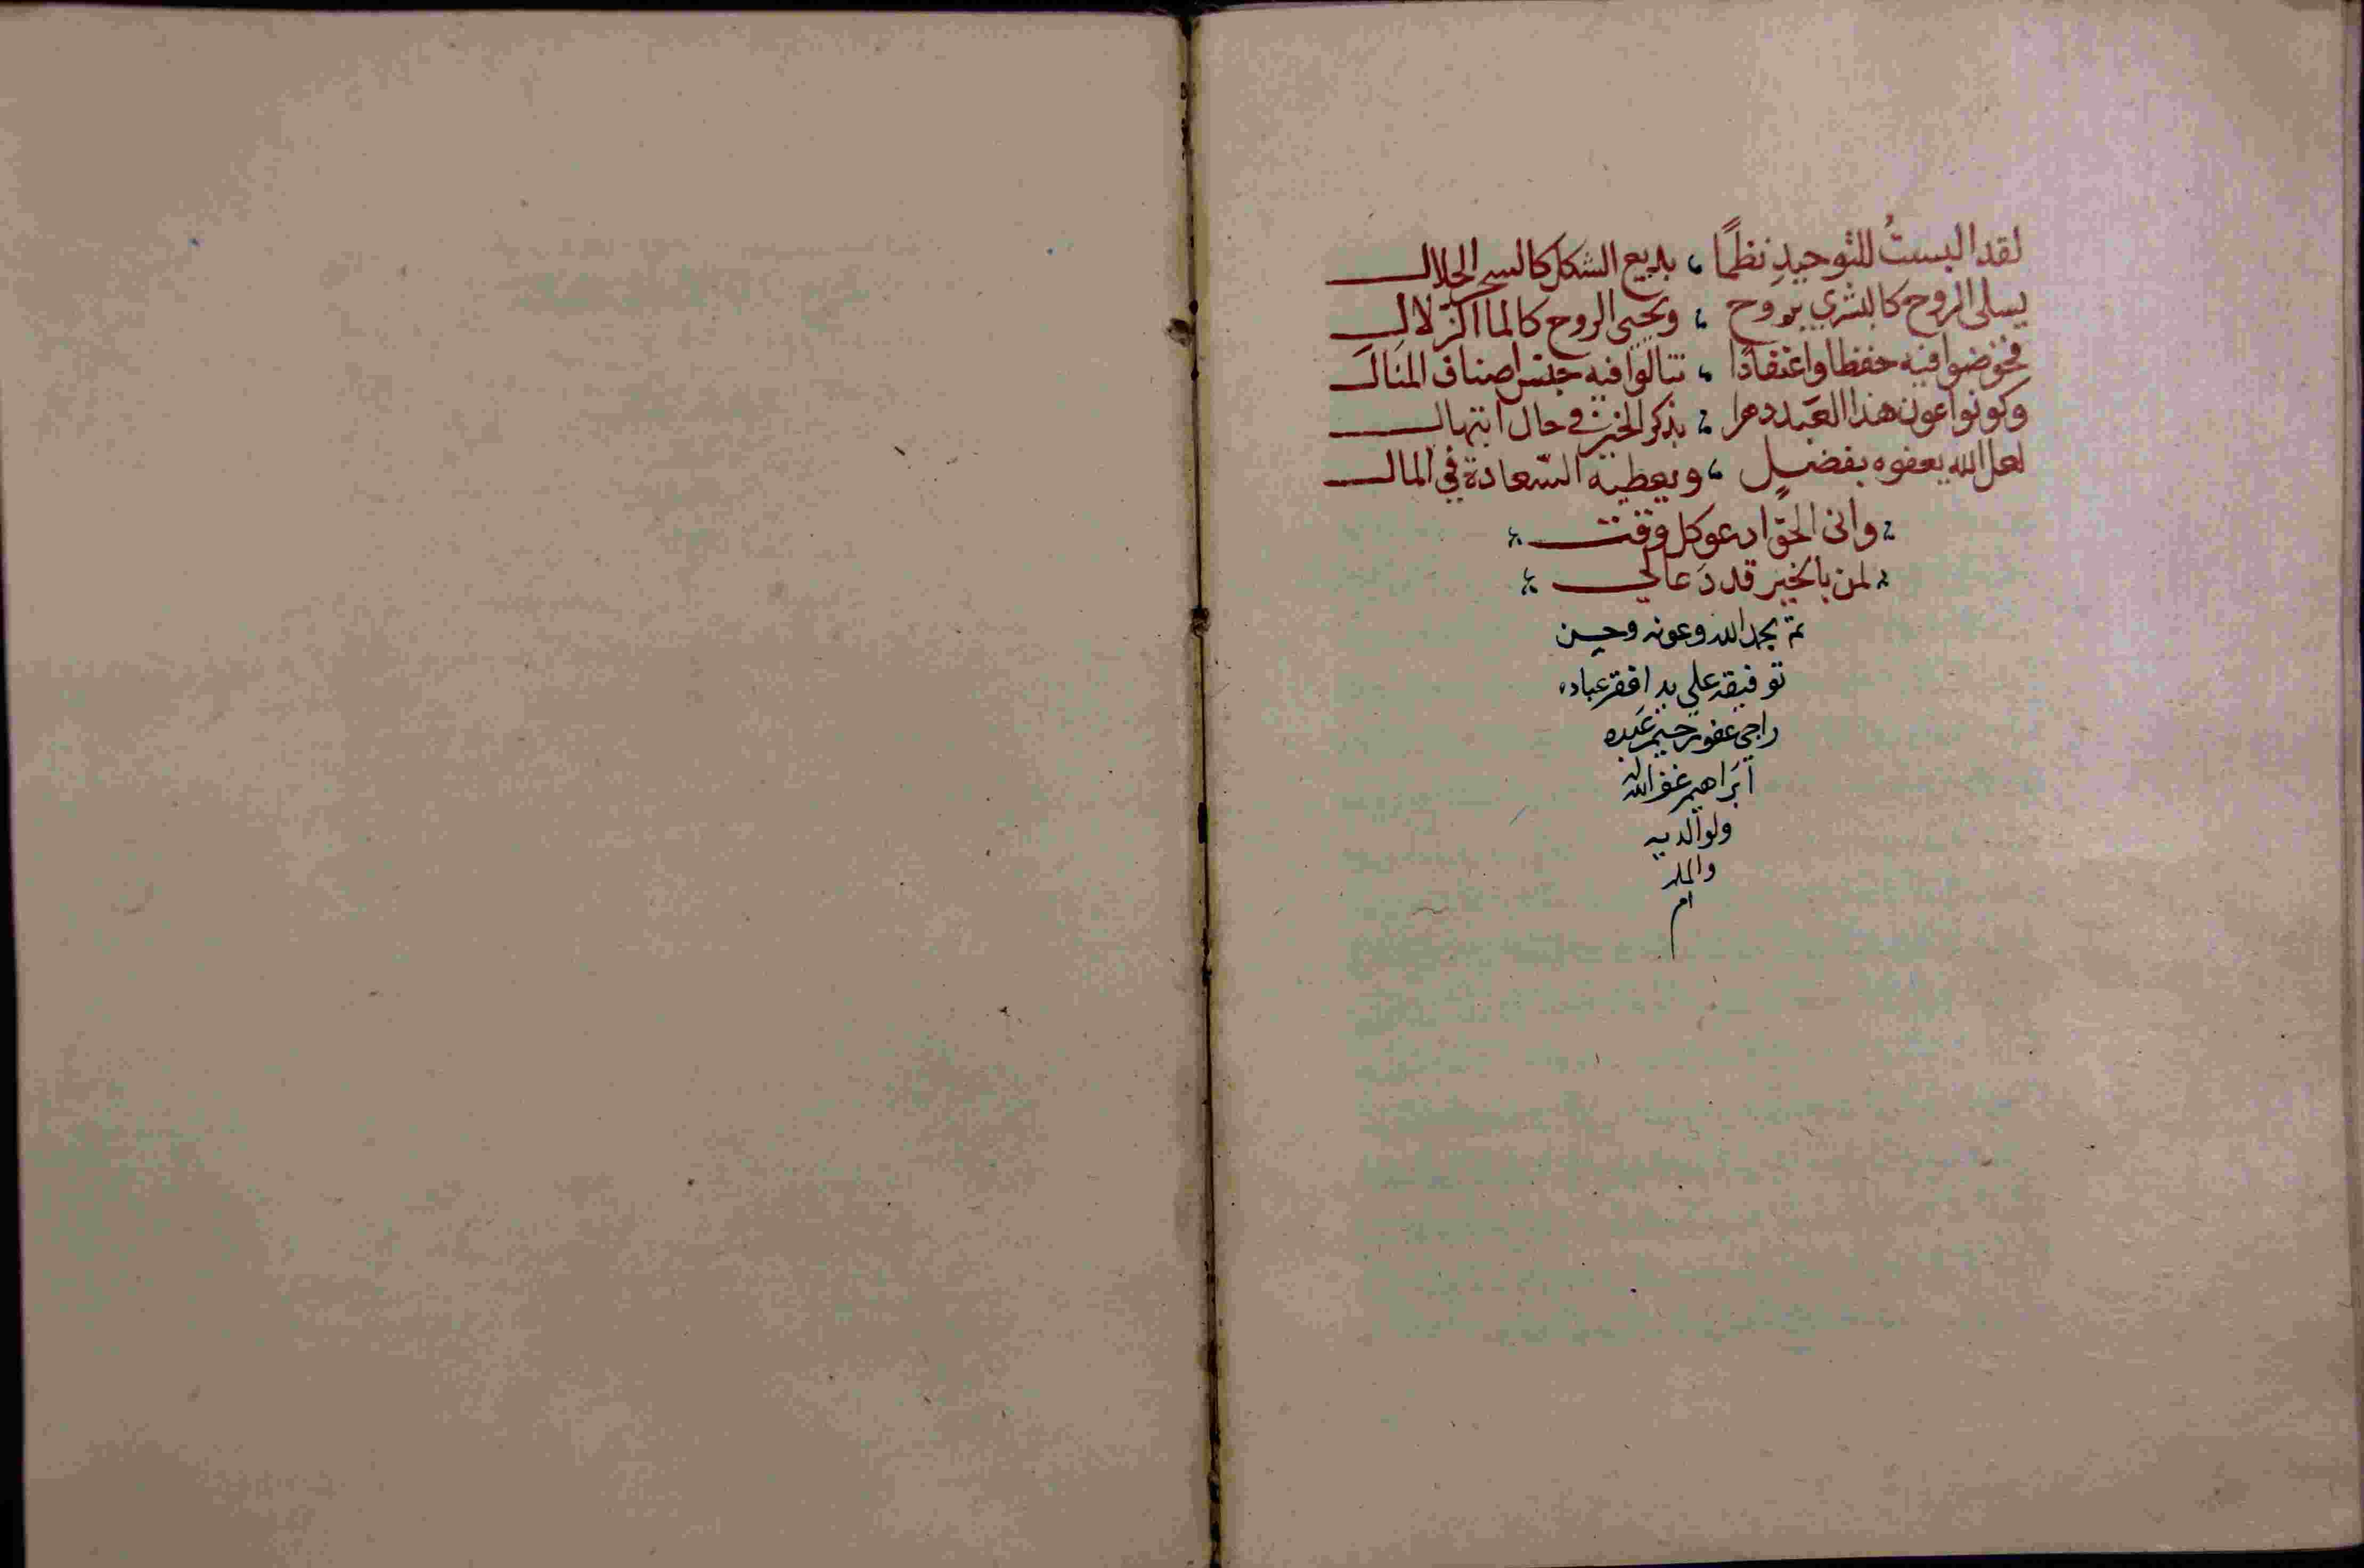 لقد البستُ للتوحيدِ نظمًا ، بديع الشكل كالسحر الحلال
يسلى الروح كالبشري بروح ، ويحيى الروح كالماا لزلال
فخوضوا فيه حفظا واعتقادًا ، تنالوا فيه جنس اصناف المنال
وكونوا عون هذا العبد دهرا ، بذكر الخير في حال ابتهال
لعل الله يعفوه بفضلٍ ، ويعطيه السّعادة في المال
وانى الحق ادعو كل وقت
لمن بالخير قد دعالي
تم بحمد الله وعونه وحسن
توفيقه علي يد افقر عباده
راجي عفو عبده
ابراهيم غفر الله له
ولوالديه